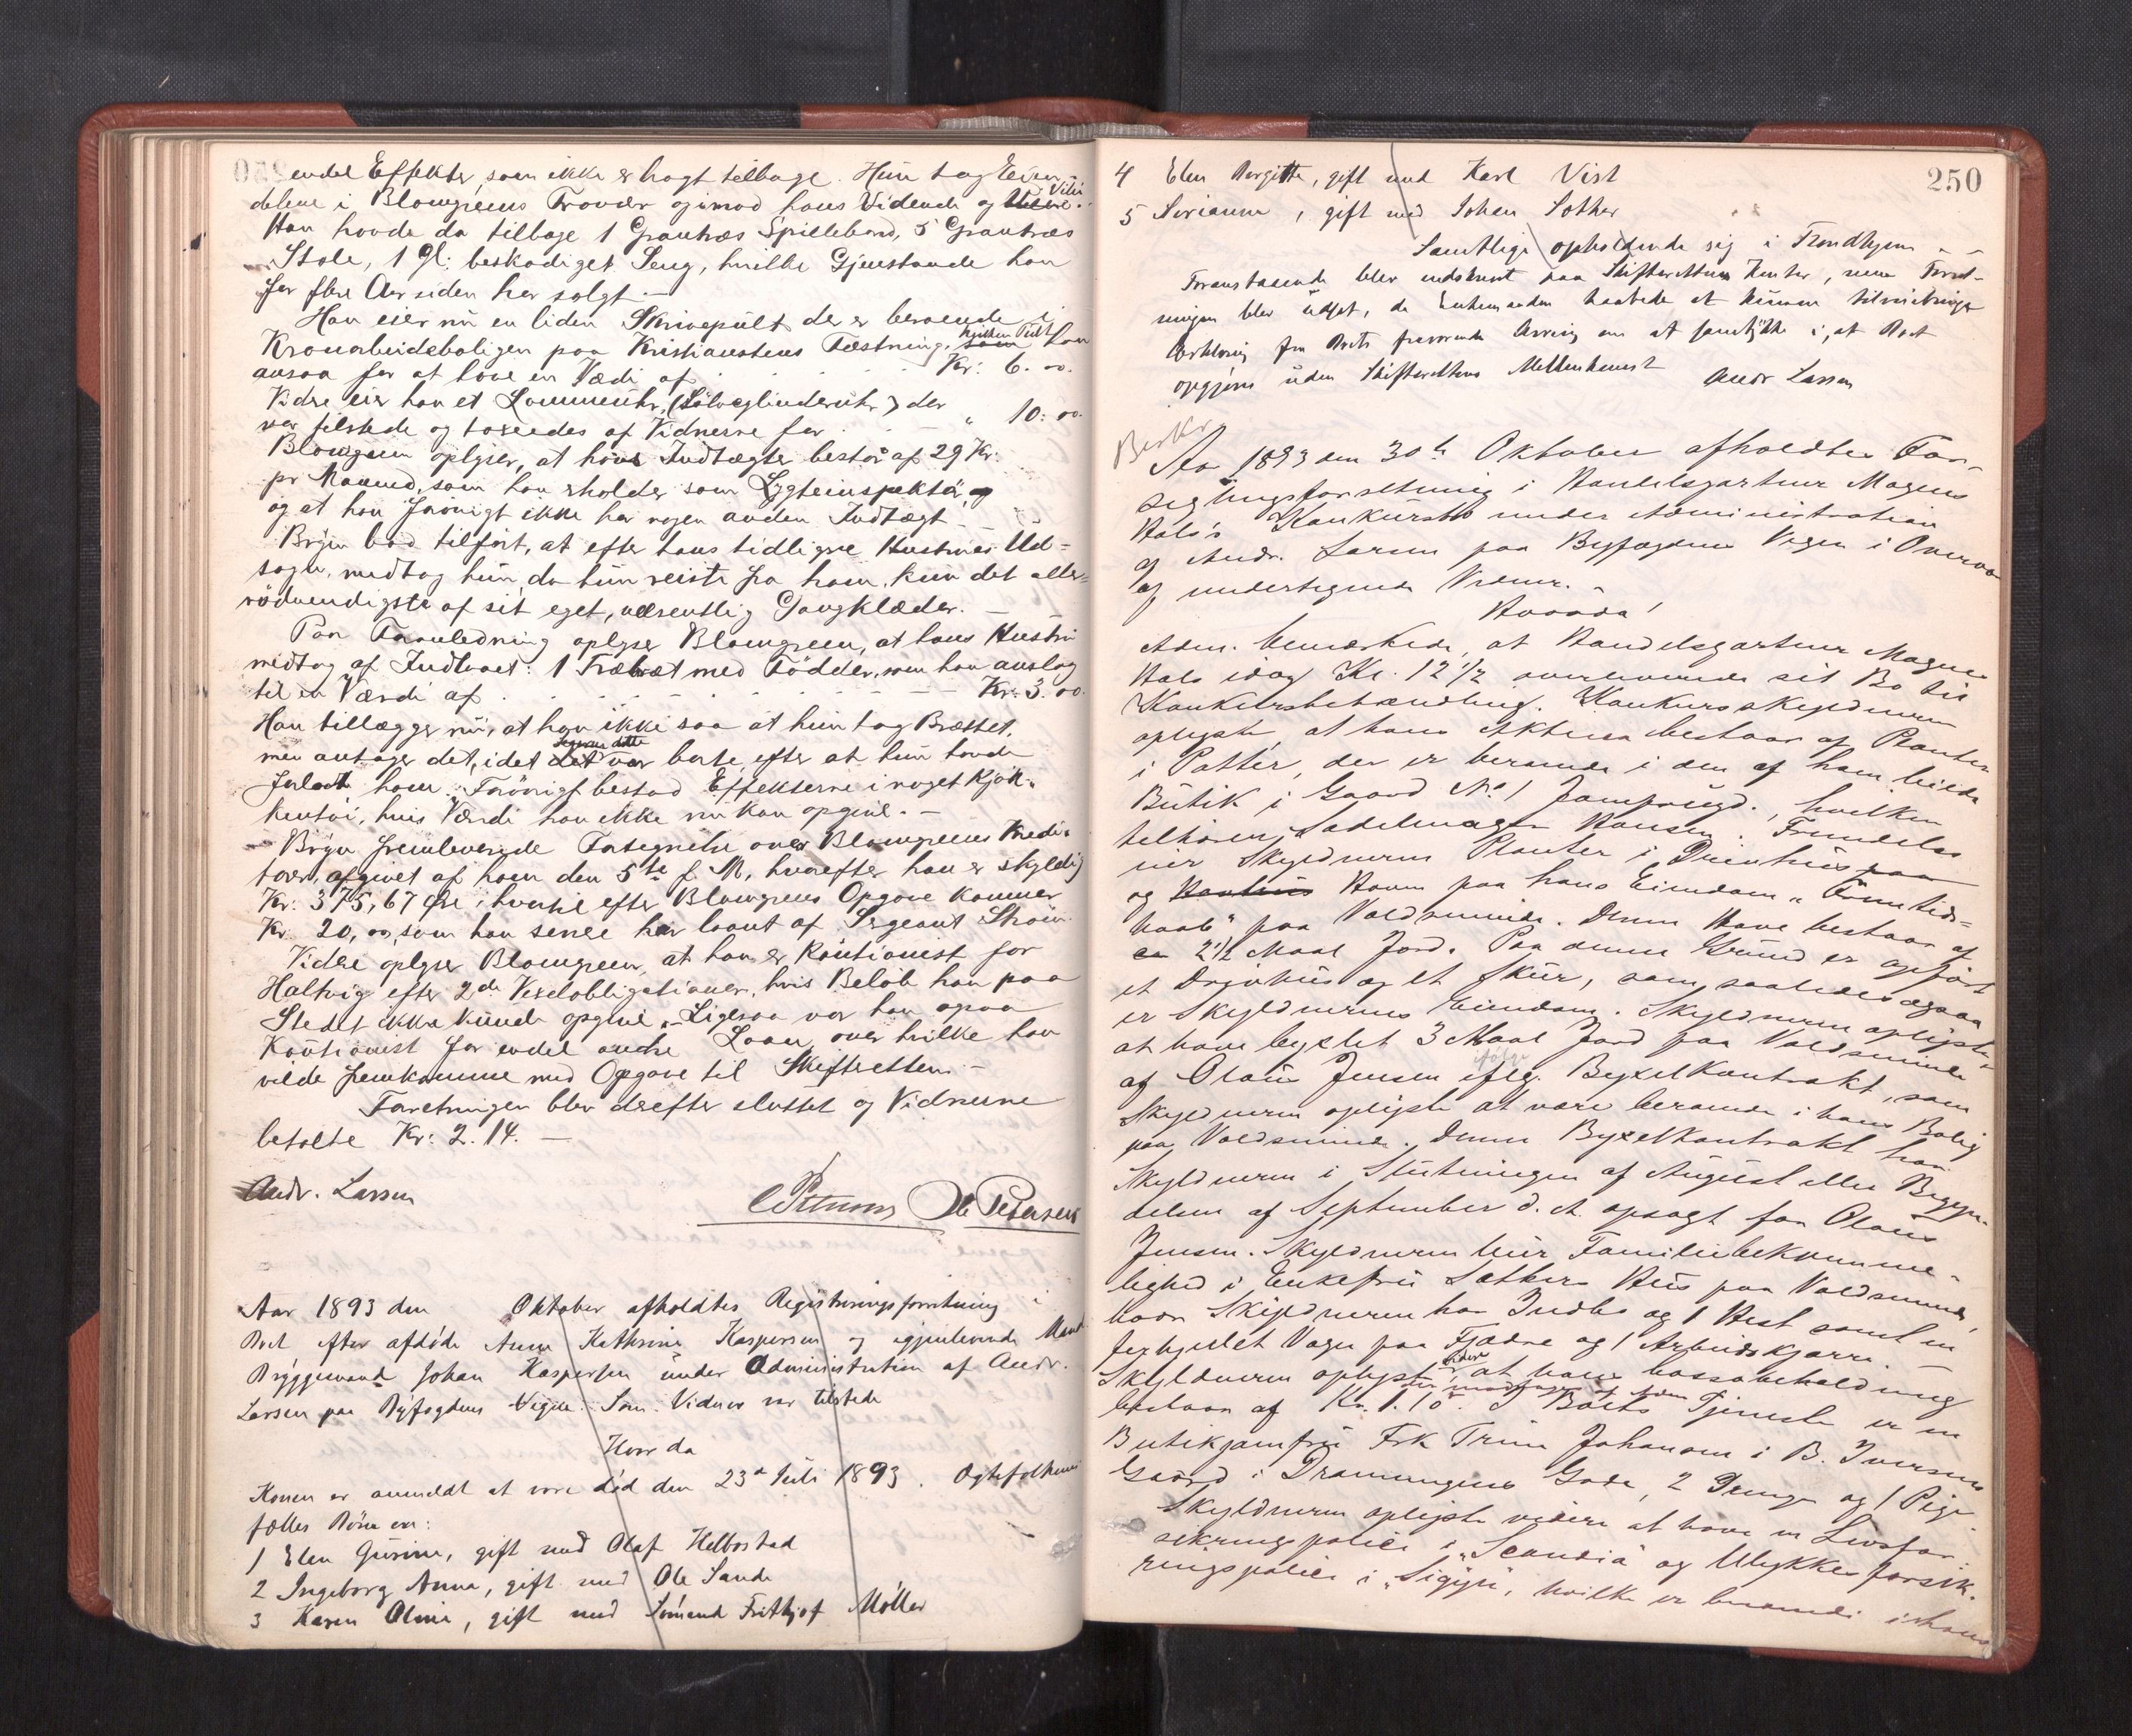 endel Effekter, som ikke er bragt tilbage. Hun tog Eien-
delene i Blomgreens Fravær og imod hans Vidende og Villie.
Han havde da tilbage 1 Grantræs Spillebord, 5 Grantræs
Stole, 1 gl: beskadiget Seng, hvilke Gjenstande han
for flere Aar siden har solgt.-
Han eier nu en liden Skrivepult der er beroende i
Kronarbeideboligen paa Kristianstens Fæstning, hvilken Pult han
ansaa for at have en Værdi af . . . . . Kr: 6.00.
Videre eier han et Lommeuhr, (Sølvcylinderuhr) der
var tilstede og taxeredes af Vidnerne for . . . " 10:00.
Blomgreen oplyser, at hans Indtægter bestaar af 29 Kr.
pr Maaned, som han erholder som Lygteinspektør,
og at han forøvrigt ikke har nogen anden Indtægt.-
Bryn bad tilført, at efter hans tidligere Hustrues Ud-
sagn, medtog hun, da hun reiste fra ham, kun det aller-
nødvendigste af sit eget, væsentlig Gangklæder.-
Paa Foranledning oplyser Blomgreen, at hans Hustru
medtog af Indboet: 1 Træbræt med Fødder, som han anslog
til en Værdi af . . . . . Kr: 3.00
Han tillægger nu, at han ikke saa at hun tog Brættet,
men antager det, idet det var borte efter at hun havde
forladt ham. Forøvrigt bestod Effekterne i noget Kjøk-
kentøi, hvis Værdi han ikke nu kan opgive.-
Bryn fremleverede Fortegnelse over Blomgreens Kredi-
torer, afgivet af ham den 5te f. M, hvorefter han er skyldig
Kr: 375,67 Øre, hvortil efter Blomgreens Opgave kommer
Kr 20,00, som han senere har laant af Sergeant Strøm.
Videre oplyser Blomgreen, at han er Kautionist for
Haltvig efter 2de Vexelobligationer, hvis Beløb han paa
Stedet ikke kunde opgive.- Ligesaa var han ogsaa
Kautionist for endel andre Laan, over hvilke han
vilde fremkomme med Opgave til Skifteretten.-
Forretningen blev derefter sluttet og Vidnerne
betalte Kr: 2.14.-
Andr. Larsen Ole Pedersen
Aar 1893 den Oktober afholdtes Registreringsforretning i
Boet efter afdøde Anne Kathrine Kaspersen og igjenlevende Mand
Bryggemand Johan Kaspersen under Administration af Andr.
Larsen paa Byfogdens Vegne. Som Vidner var tilstede
Hvor da
Konen er anmeldt at være død den 23de Juli 1893. Ægtefolkenes
fælles Børn er:
1 Elen Gurine, gift med Olaf Helbostad
2 Ingeborg Anna, gift med Ole Sande
3 Karen Oline, gift med Sømand Frithjof Møller
250
4 Elen Birgitte, gift med Karl Vist
5 Serianna, gift med Johan Sother
Samtlige opholdende sig i Trondhjem.-
Foranstaaende blev indskrevet paa Skifterettens Kontor, men Forret-
ningen blev udsat, da Enkemanden haabede at kunne tilveiebringe
Erklæring fra Boets fraværende Arving om at samtykke i, at Boet
opgjøres uden Skifterettens Mellemkomst Andr Larsen
Aar 1893 den 30te Oktober afholdtes For-
seglingsforretning i Handelsgartner Magnus
Hals's Konkursbo under Administration
af Andr. Larsen paa Byfogdens Vegne i Overvær
af undertegnede Vidner.-
Hvorda!
Adm. bemærkede, at Handelsgartner Magnus
Hals idag Kl. 12 1/2 overleverede sit Bo til
Konkursbehandling. Konkursskyldneren
oplyste, at hans Aktiva bestaar af Planter
i Potter, der er beroende i den af ham leiede
Butik i Gaard No 1 Jomfrugd., hvilken
tilhører Sadelmager Hansen. Fremdeles
eier Skyldneren Planter i Drivhus
og Haven paa hans Eiendom "Fremtids-
haab" paa Voldsminde. Denne Have bestaar af
ca 2 1/2 Maal Jord. Paa denne Grund er opført
et Drivhus og et Skur, som saaledes ogsaa
er Skyldnerens Eiendom. Skyldneren oplyste
at have bygslet 3 Maal Jord paa Voldsminde
af Olaus Jensen iflg. Byxelkontrakt, som
Skyldneren oplyste at være beroende i hans Bolig
paa Voldsminde. Denne Byxelkontrakt har
Skyldneren i Slutningen af August eller Begyn-
delsen af September d. A. opsagt for Olaus
Jensen. Skyldneren leier Familiebekvemme-
lighed i Enkefru Sæthers Hus paa Voldsminde,
hvor Skyldneren har Indbo og 1 Hest samt en
firhjulet Vogn paa Fjædre og 1 Arbeidskjærre.-
Skyldneren oplyste videre, at hans Kassabeholdning
bestaar af Kr. 1.10. I Boets Tjeneste er en
Butikjomfru Frk Trine Johansen i B. Iversens
Gaard i Dronningens Gade, 2 Drenge og 1 Pige.
Skyldneren oplyste videre at have en Livsfor-
sikringspolice i "Scandia" og Ulykkesforsik-
ringspolice i "Sigyn", hvilke er beroende i hans